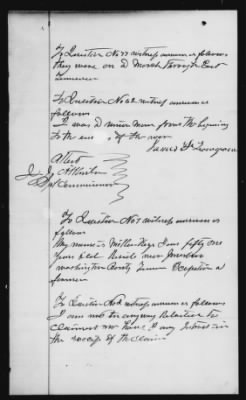 To Question No 77 witness answers as follows
they were on a March through East
Tennessee
To Question No 82 witness answers as
follows
I was a union man from the beginning
to the end of the war
James W. Livingston
Attest
Commissioner
To Question No 1 witness answers as
follows
My name is I am fifty one
years old Reside near
Washington County Tenn Occupation a
farmer
To Question No 2 witness answers as follows
I am not in any way Related to
claimant nor have I any interest in
the success of the claim